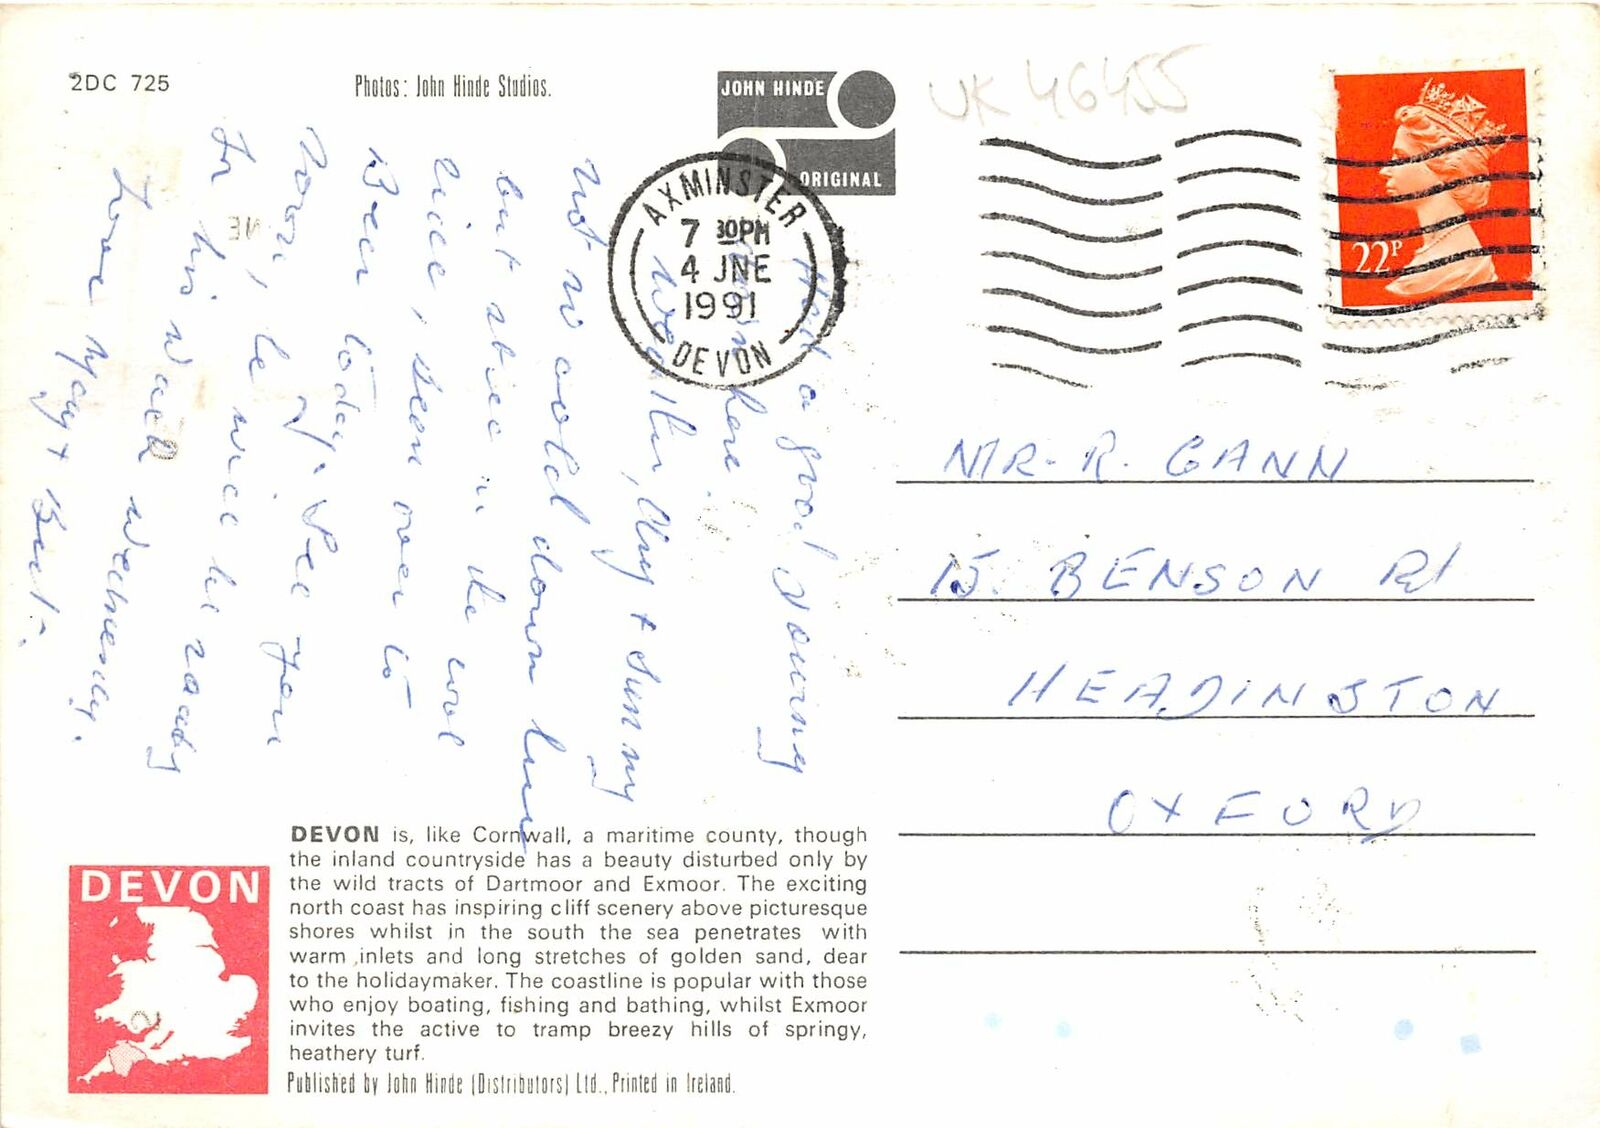 2DC 725
Photos: John Hinde Studios.
JOHN HINDE
ORIGINAL
UK 46455
AXMINSTER
7 30PM
4 JNE
1991
DEVON
22P
Had a good Journey
down here.
Weather, Dry + Sunny
Not so cold down here
but still in the
nice, been over to
Beer today. See you
Love
MR. R. GANN
15. BENSON Rd
HEADINGTON
OXFORD
DEVON is, like Cornwall, a maritime county, though
the inland countryside has a beauty disturbed only by
the wild tracts of Dartmoor and Exmoor. The exciting
north coast has inspiring cliff scenery above picturesque
shores whilst in the south the sea penetrates with
warm inlets and long stretches of golden sand, dear
to the holidaymaker. The coastline is popular with those
who enjoy boating, fishing and bathing, whilst Exmoor
invites the active to tramp breezy hills of springy,
heathery turf.
Published by John Hinde (Distributors) Ltd., Printed in Ireland.
DEVON